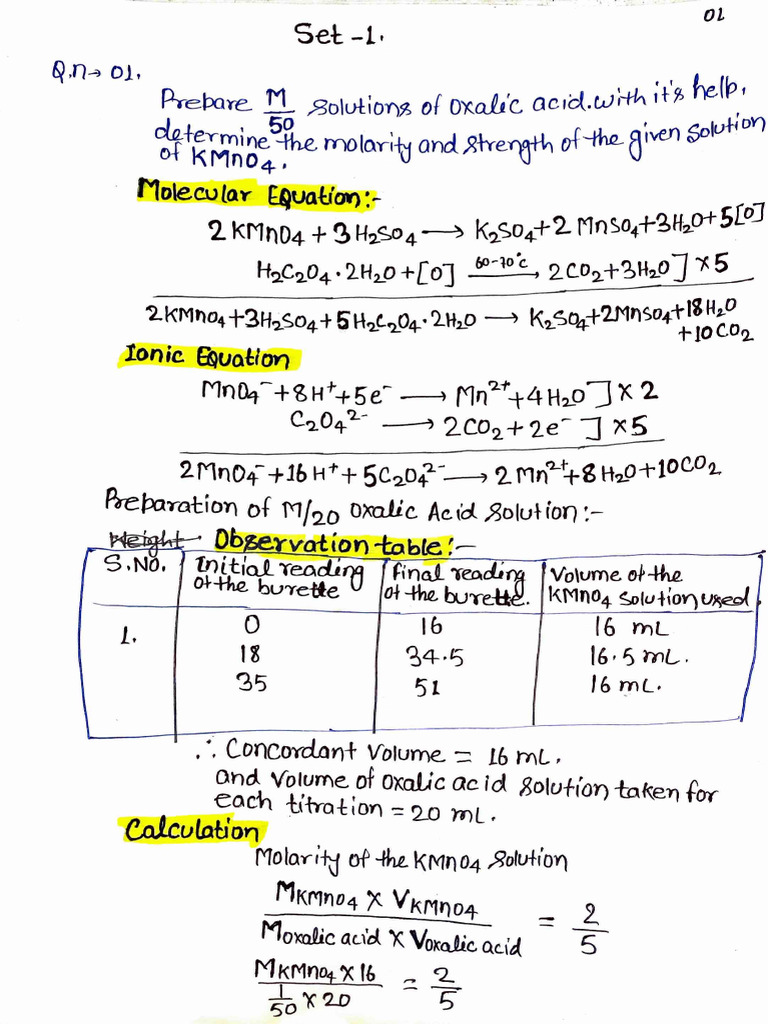 01
Set -1.
Q.n→ 01.
Prepare M/50 solutions of oxalic acid. with it's help,
determine the molarity and strength of the given solution
of KMnO4.
Molecular Equation:-
2KMnO4 + 3H2SO4 → K2SO4+2MnSO4+3H2O+5[O]
H2C2O4·2H2O+[O] 60-70°C → 2CO2+3H2O] ×5
2KMnO4+3H2SO4+5H2C2O4·2H2O → K2SO4+2MnSO4+18H2O
+10CO2
Ionic Equation
MnO4⁻+8H⁺+5e⁻ → Mn²⁺+4H2O] × 2
C2O4²⁻ → 2CO2+2e⁻] ×5
2MnO4⁻+16H⁺+5C2O4²⁻ → 2Mn²⁺+8H2O+10CO2
Preparation of M/20 oxalic Acid solution:-
Weight Observation table:-
S.No. Initial reading of the burette Final reading of the burette. Volume of the KMnO4 solution used.
1. 0 16 16 mL
18 34.5 16.5 mL.
35 51 16 mL.
∴ Concordant volume = 16 mL.
and volume of oxalic acid solution taken for
each titration = 20 mL.
Calculation
Molarity of the KMnO4 solution
MKMnO4 × VKMnO4 / Moxalic acid × Voxalic acid = 2/5
MKMnO4 × 16 / 1/50 × 20 = 2/5